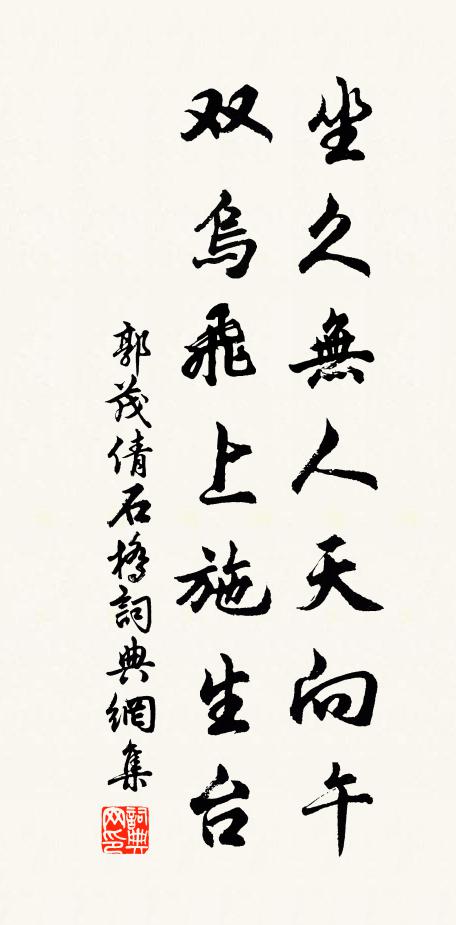 坐久無人天向午
双烏飛上施生台
郭茂倩石橋詞典網集
詞典網印